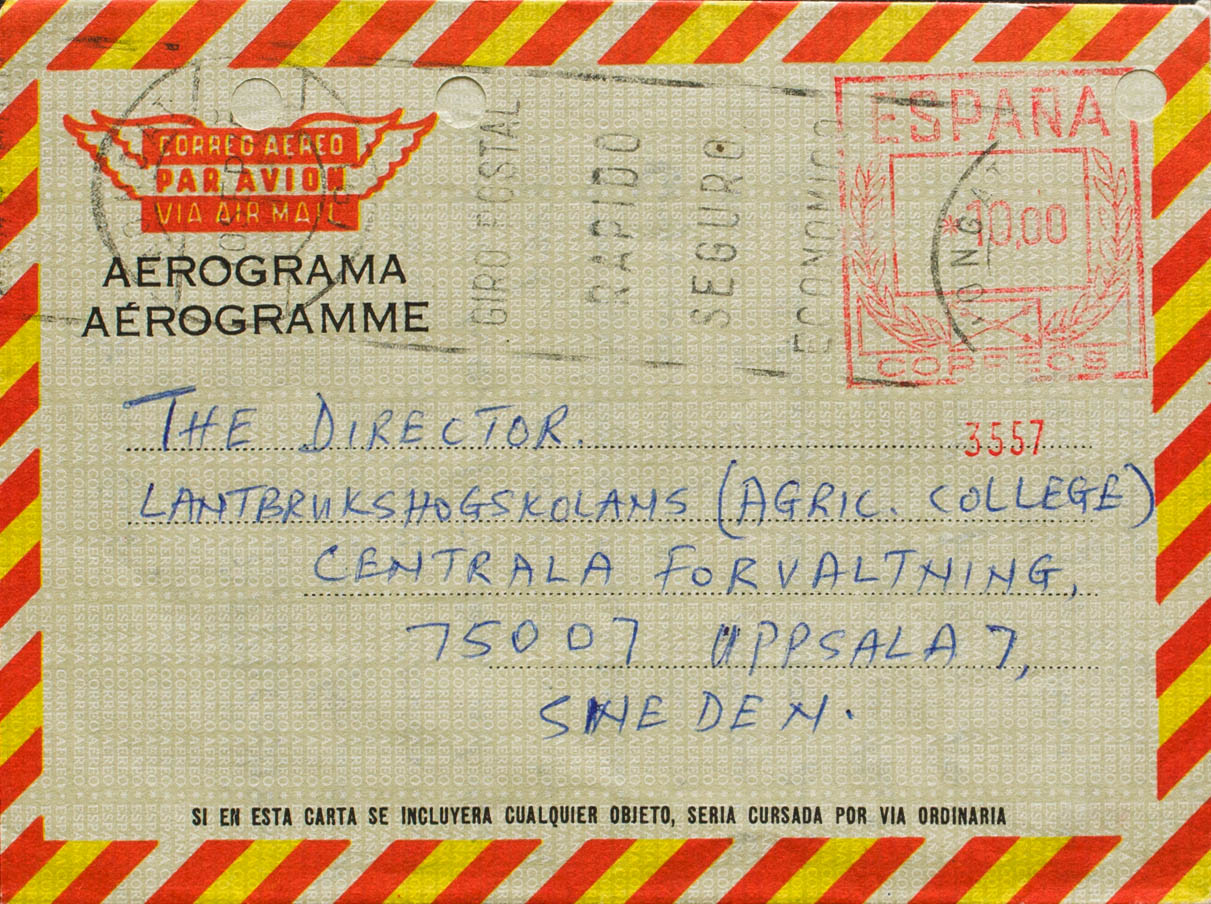 ESPAÑA
CORREO AEREO
PAR AVION
VIA AIR MAIL
GIRO POSTAL
RAPIDO
SEGURO
ECONOMICO
*10,00
CORREOS
AEROGRAMA
AÉROGRAMME
THE DIRECTOR.
3557
LANTBRUKSHOGSKOLANS (AGRIC. COLLEGE)
CENTRALA FORVALTNING,
75007 UPPSALA 7,
SWEDEN.
SI EN ESTA CARTA SE INCLUYERA CUALQUIER OBJETO, SERIA CURSADA POR VIA ORDINARIA